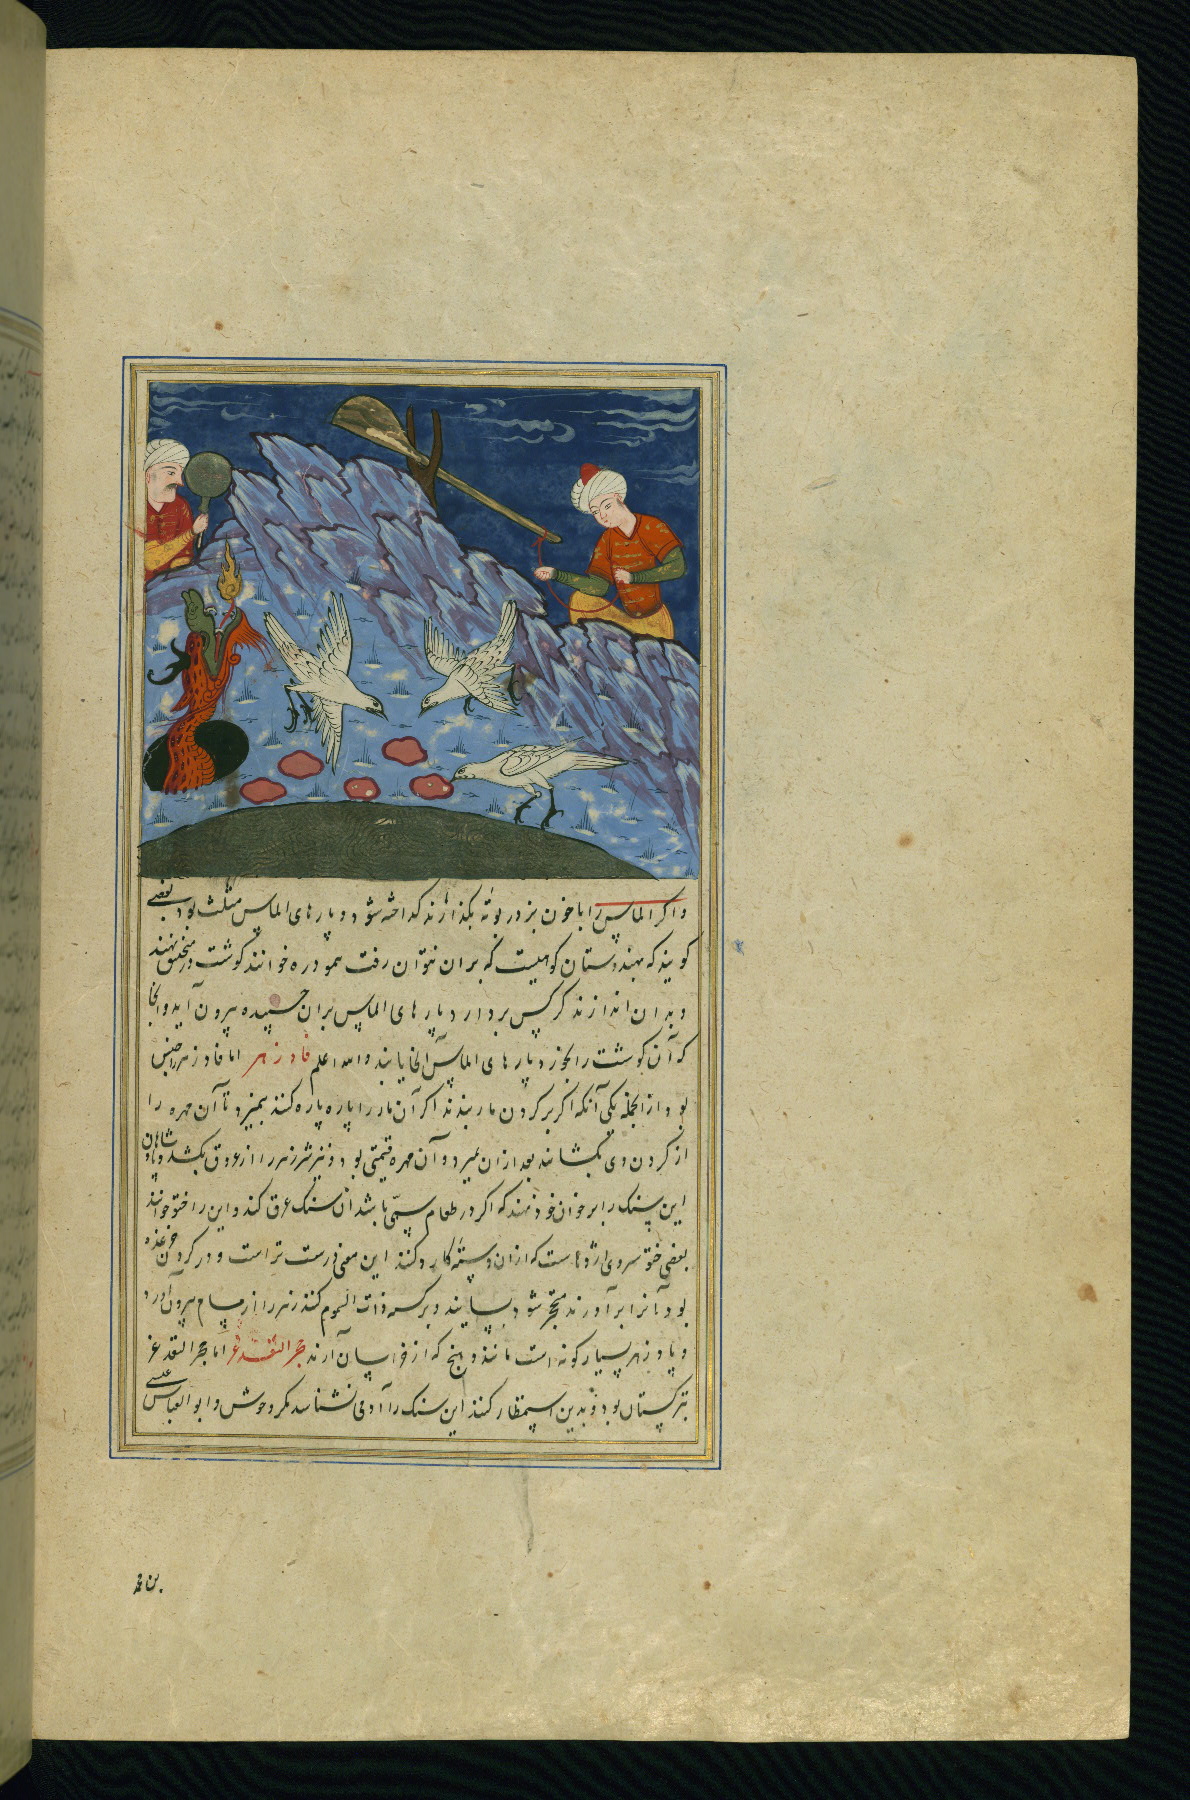 واکر الماس را باخون بز در بوته بکدازند کداخته شود و پارهای الماس مثلث بود بعضی
کویند که بهندوستان کوهیست که بران نتوان رفت سمو دره خوانند کوشت در منجنیق نهند
و بدان اندازند کرکس بردارد پارهای الماس بران چسپیده بیرون آید وانجا
که آن کوشت را بخورد پارهای الماس آنجا یابند والله اعلم فادزهر اما فادزهر اجناس
بود از انجمله یکی آنکه اکر بر کردن مار بندند اکر آن مار را پاره پاره کنند نمیرد تا آن مهره را
از کردن وی بکشایند بعد ازان بمیرد و آن مهره قیمتی بود و نیز زهر را از عروق بکشد و پادشاهان
این سنک را بر خوان خود نهند که اکر در طعام سمی باشد آن سنک عرق کند و این را ختو خوانند
بعضی ختو سروی اژدهاست که ازان دسته کارد کنند این معنی درست تر است و در کردن غده
بود آنرا برآورند متحجر شود بسایند و بر لسعه ذوات السموم کنند زهر را از مسام بیرون آورد
و پادزهر بسیار کونه است مانند و هیچ که از خراسان آرند حجر التقدغر اما حجر التقدغر
بترکستان بود و بدین استمطار کنند این سنک را آدمی نشناسد مکر وحوش و ابو العباس عیسی
بن محمد